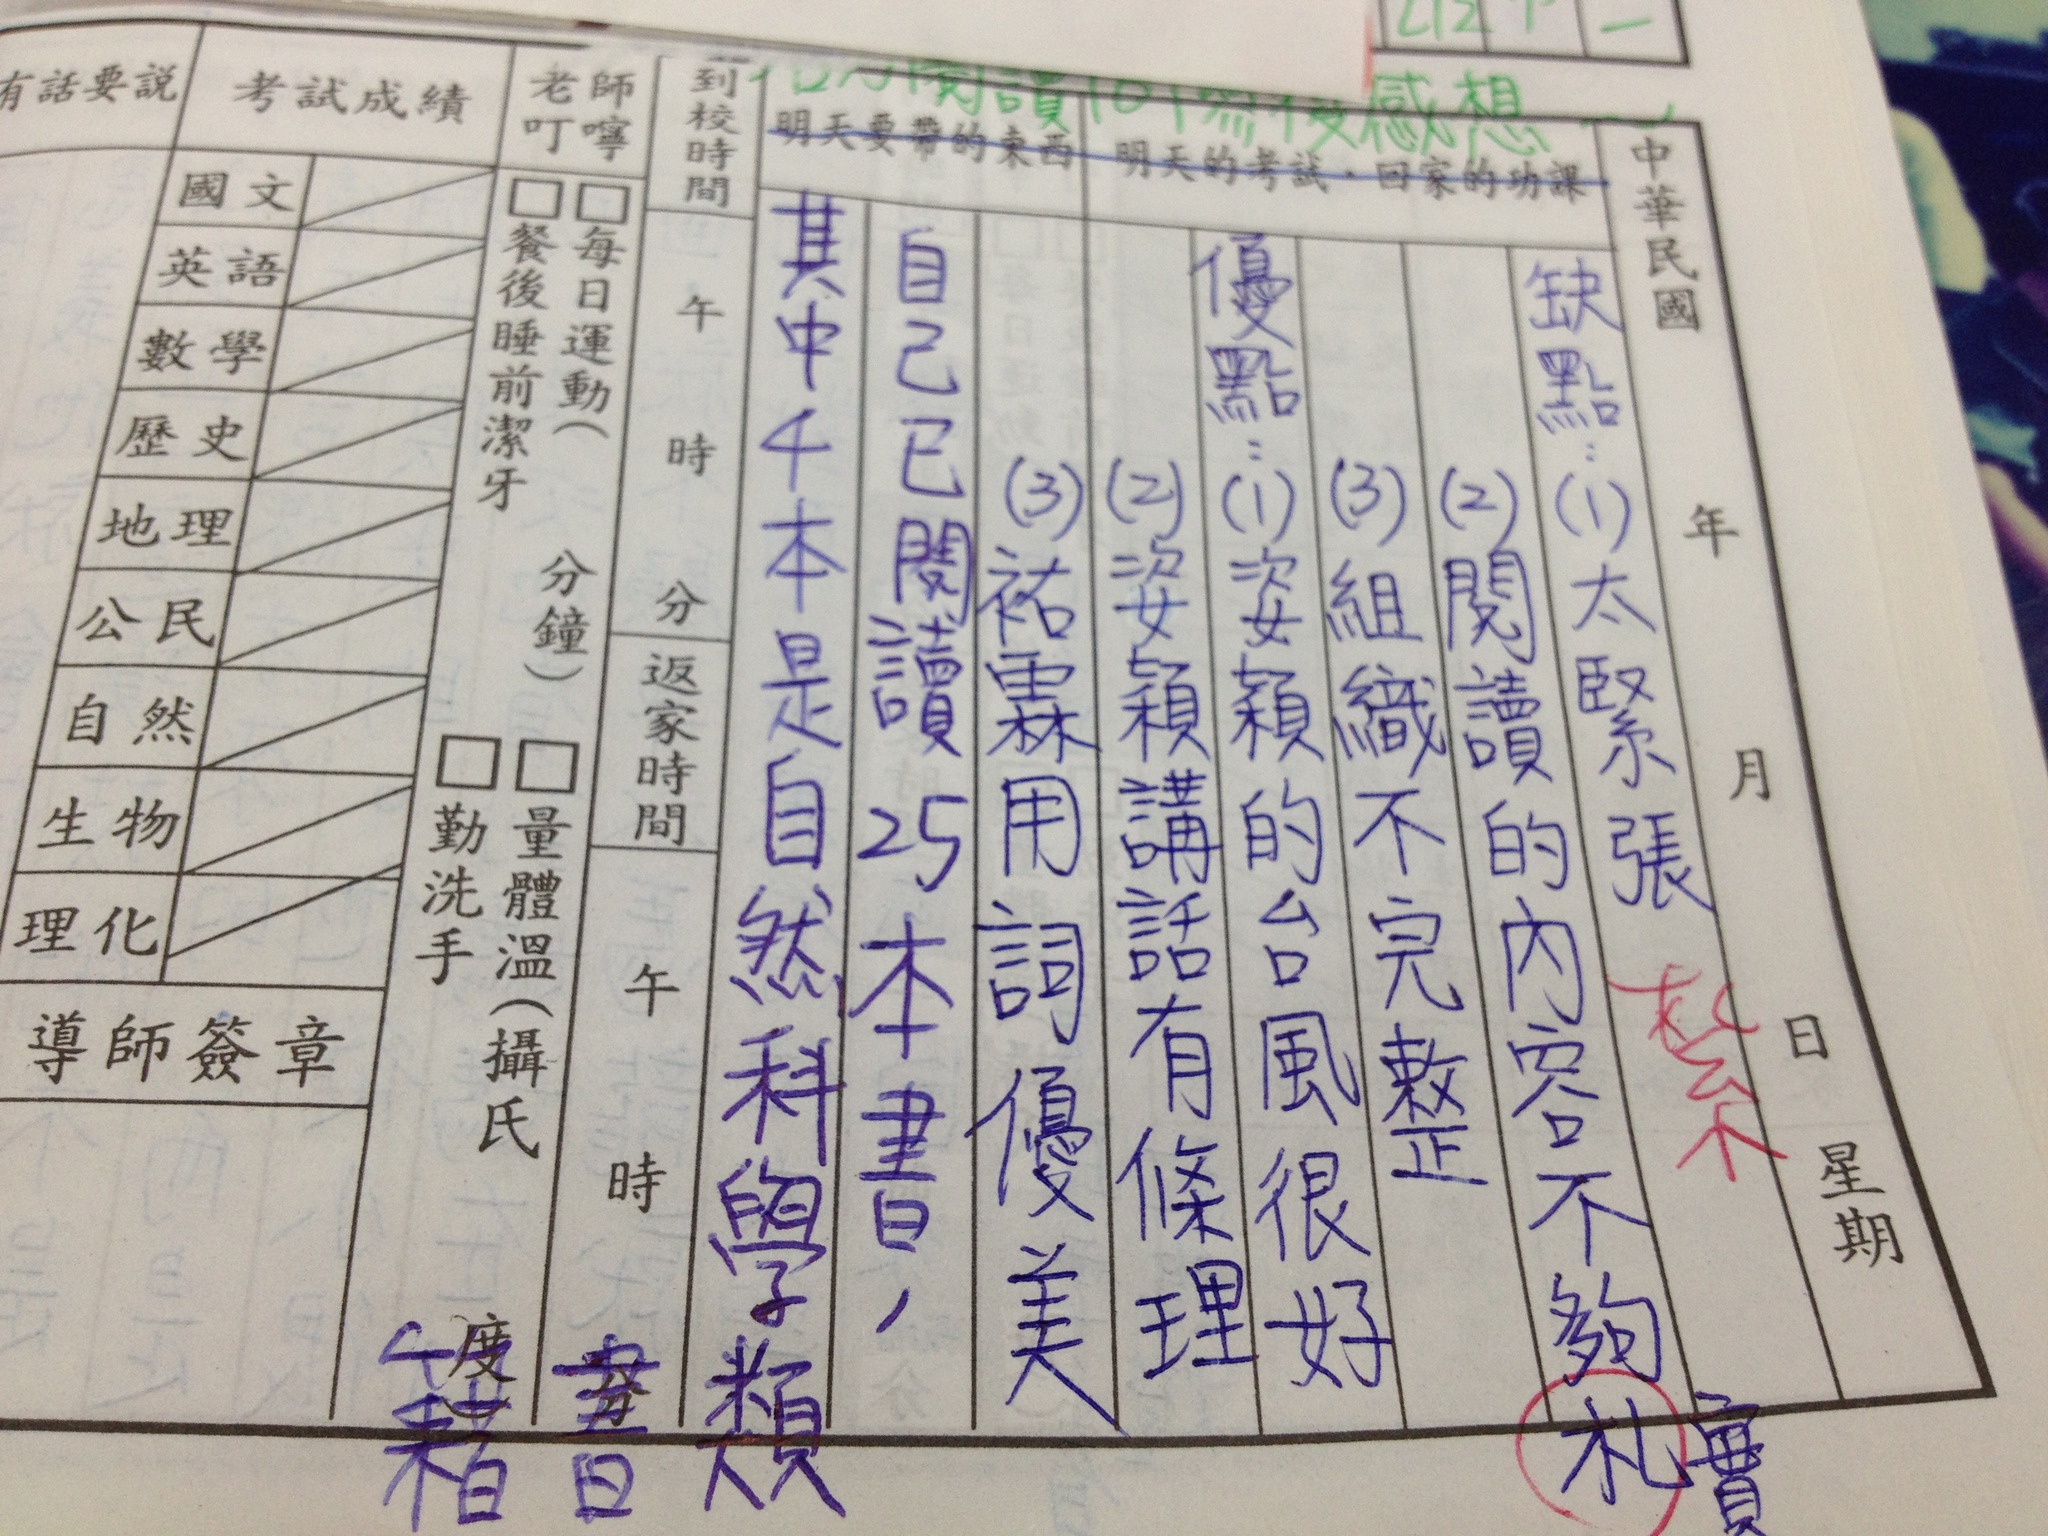 感想
中華民國 年 月 日 星期
明天的考試、回家的功課
明天要帶的東西
缺點：(1)太緊張
紮
(2)閱讀的內容不夠札實
(3)組織不完整
優點：(1)姿穎的台風很好
(2)姿穎講話有條理
(3)祐霖用詞優美
自己已閱讀25本書，
其中千本是自然科學類書籍
到校時間 午 時 分
返家時間 午 時 分
老師叮嚀
□每日運動( 分鐘)
□量體溫(攝氏 度)
□餐後睡前潔牙
□勤洗手
考試成績
國文
英語
數學
歷史
地理
公民
自然
生物
理化
導師簽章
有話要說